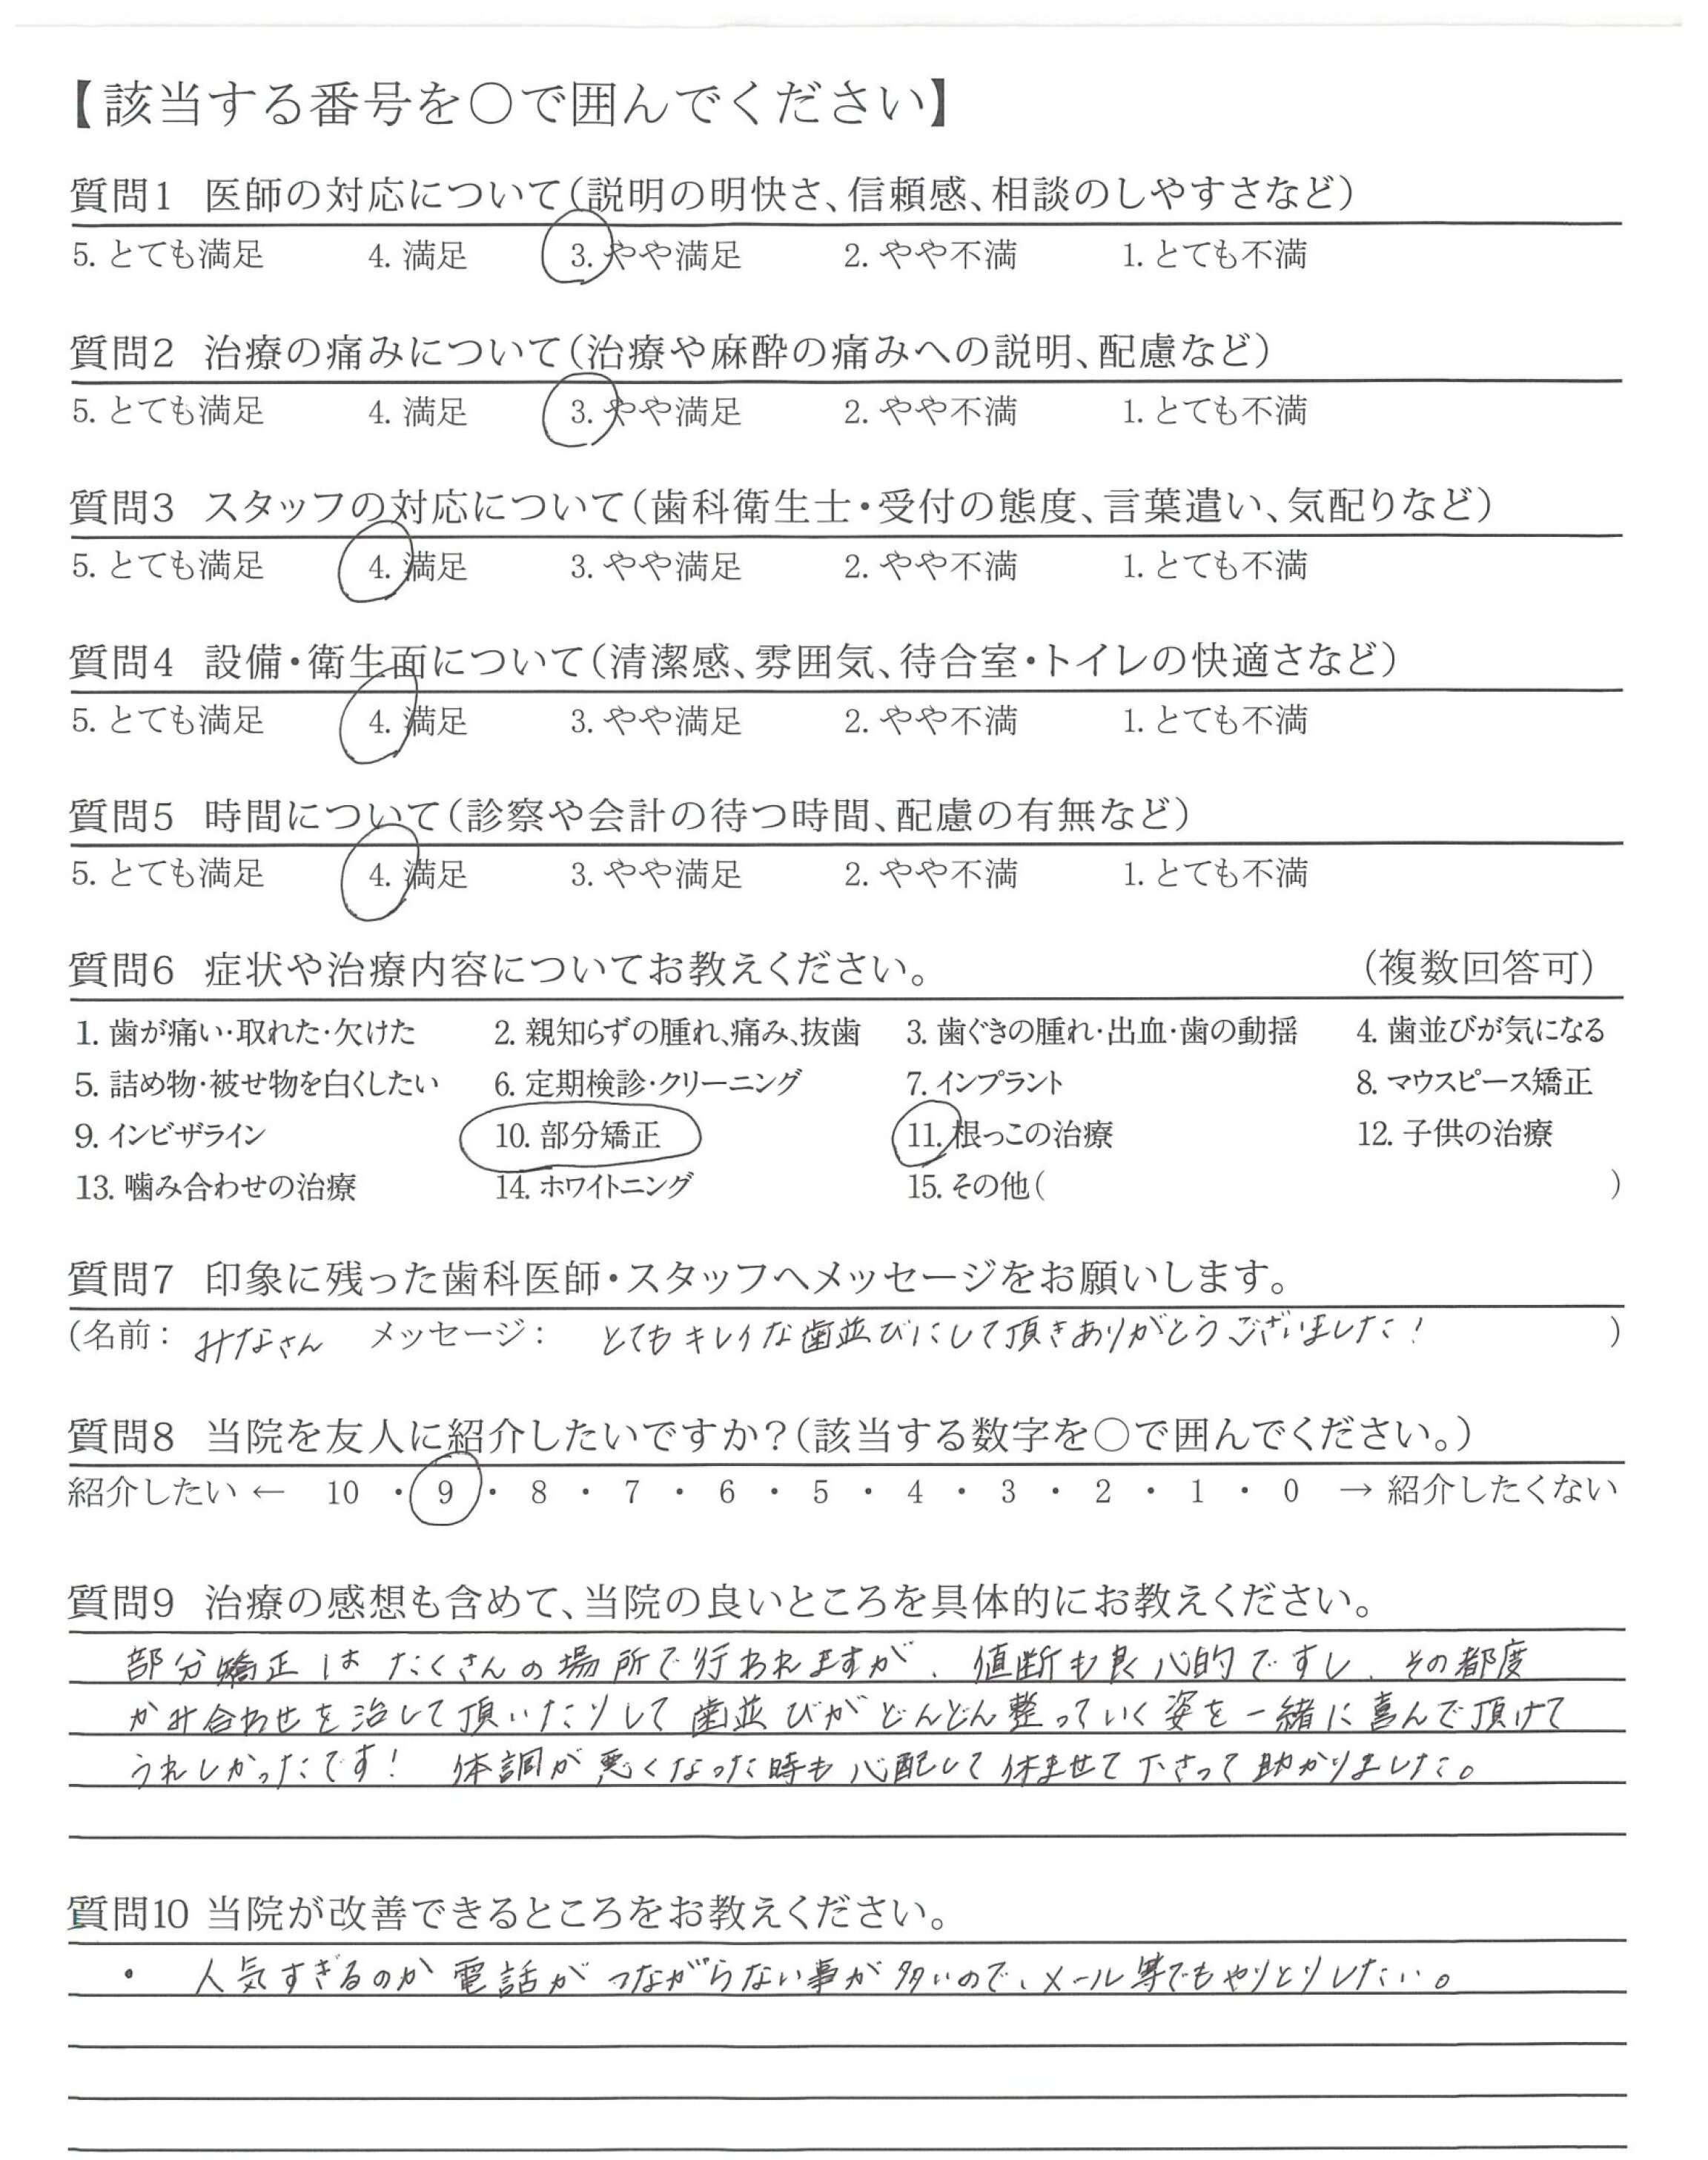 【該当する番号を○で囲んでください】
質問1 医師の対応について(説明の明快さ、信頼感、相談のしやすさなど)
5. とても満足 4. 満足 3. やや満足 2. やや不満 1. とても不満
質問2 治療の痛みについて(治療や麻酔の痛みへの説明、配慮など)
5. とても満足 4. 満足 3. やや満足 2. やや不満 1. とても不満
質問3 スタッフの対応について(歯科衛生士・受付の態度、言葉遣い、気配りなど)
5. とても満足 4. 満足 3. やや満足 2. やや不満 1. とても不満
質問4 設備・衛生面について(清潔感、雰囲気、待合室・トイレの快適さなど)
5. とても満足 4. 満足 3. やや満足 2. やや不満 1. とても不満
質問5 時間について(診察や会計の待つ時間、配慮の有無など)
5. とても満足 4. 満足 3. やや満足 2. やや不満 1. とても不満
質問6 症状や治療内容についてお教えください。 (複数回答可)
1. 歯が痛い・取れた・欠けた 2. 親知らずの腫れ、痛み、抜歯 3. 歯ぐきの腫れ・出血・歯の動揺 4. 歯並びが気になる
5. 詰め物・被せ物を白くしたい 6. 定期検診・クリーニング 7. インプラント 8. マウスピース矯正
9. インビザライン 10. 部分矯正 11. 根っこの治療 12. 子供の治療
13. 噛み合わせの治療 14. ホワイトニング 15. その他( )
質問7 印象に残った歯科医師・スタッフへメッセージをお願いします。
(名前: みなさん メッセージ: とてもキレイな歯並びにして頂きありがとうございました! )
質問8 当院を友人に紹介したいですか?(該当する数字を○で囲んでください。)
紹介したい ← 10 ・ 9 ・ 8 ・ 7 ・ 6 ・ 5 ・ 4 ・ 3 ・ 2 ・ 1 ・ 0 → 紹介したくない
質問9 治療の感想も含めて、当院の良いところを具体的にお教えください。
部分矯正はたくさんの場所で行われますが、値断も良心的ですし、その都度
かみ合わせを治して頂いたりして歯並びがどんどん整っていく姿を一緒に喜んで頂けて
うれしかったです! 体調が悪くなった時も心配して休ませて下さって助かりました。
質問10 当院が改善できるところをお教えください。
・ 人気すぎるのか電話がつながらない事が多いので、メール等でもやりとりしたい。